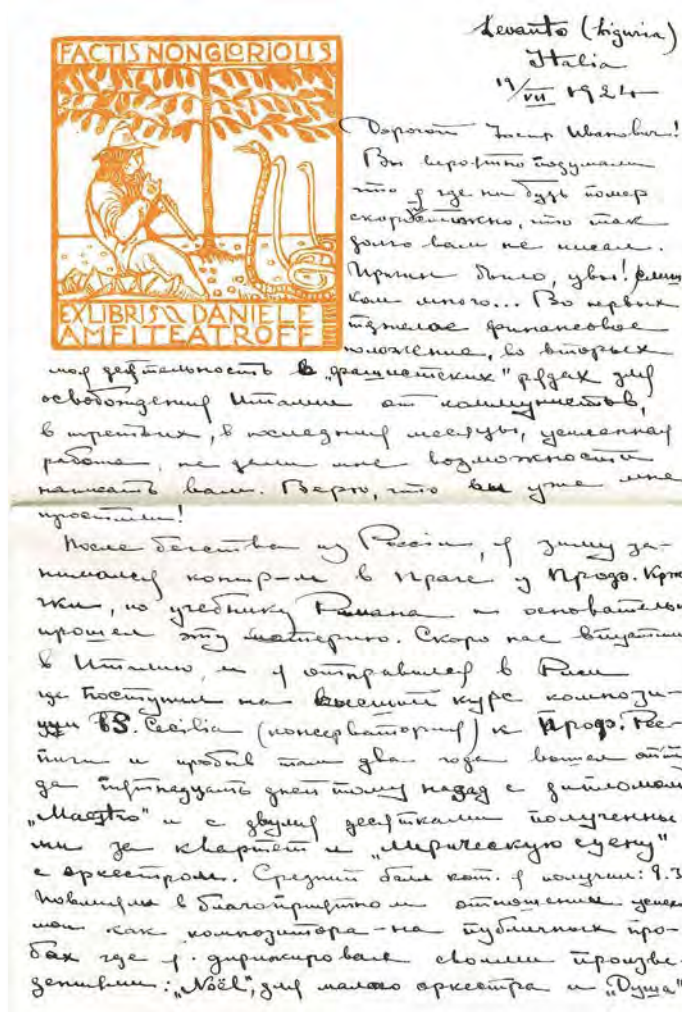 FACTIS NON GLORIOLIS
EXLIBRIS DANIELE
AMFITEATROFF
Levanto (Liguria)
Italia
19/VII 1924
Дорогой Иосиф Иванович!
Вы вероятно подумали
что я где нибудь помер
скоропостижно, что так
долго вам не писал.
Причин было, увы! слиш
ком много... Во первых
тяжелое финансовое
положение, во вторых
моя деятельность в „фашистских" рядах для
освобождения Италии от коммунистов,
в третьих, в последния месяцы, усиленная
работа, не дали мне возможности
написать вам. Верю, что вы уже мне
простили!
После бегства из России, я зиму за-
нимался контр-м в Праге у Проф. Крж
чки, по учебнику Римана и основательно
прошел эту материю. Скоро нас впустили
в Италию, и я отправился в Рим
где поступил на высший курс компози-
ции в S. Cecilia (консерватория) к Проф. Рес-
пиги и пробыв там два года вышел отту
да пятнадцать дней тому назад с дипломом
„Maestro" и с двумя десятками полученны
ми за квартет и „лирическую сцену"
с оркестром. Средний балл кот. я получил: 9.3
Повлияли в благоприятном отношении успехи
мои как композитора - на публичных про-
бах где я дирижировал своими произве-
дениями: „Noël", для малого оркестра и „Душа"